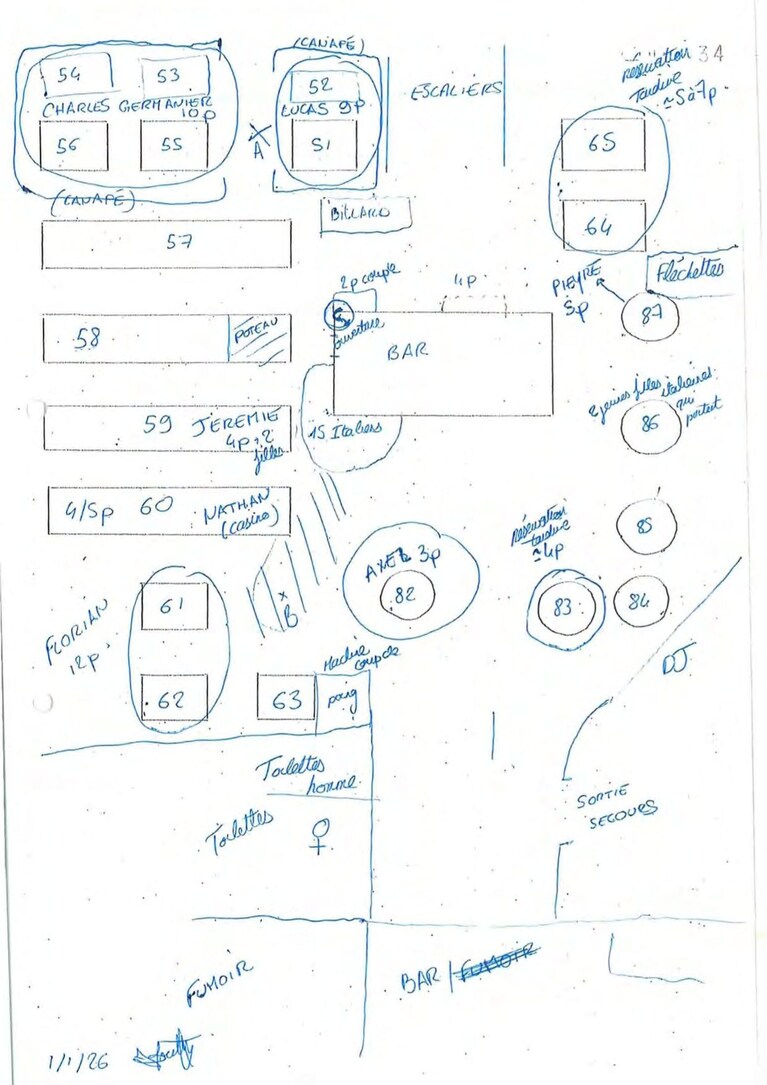 34
(CANAPÉ)
54
53
CHARLES GERMANIER
10p
56
55
(CANAPÉ)
A
52
LUCAS 9p
51
ESCALIERS
réservation
tardive
≈ 5 à 7p.
65
64
BILLARD
57
Fléchettes
PIEYRE
5p
87
2p couple
4p
ouverture
BAR
58
POTEAU
59 JEREMIE
4p + 2
filles
15 Italiens
2 jeunes filles italiennes
qui
partent
86
4/5p 60 NATHAN
(casino)
réservation
tardive
≈ 4p
85
AXEL 3p
82
83
84
61
B
FLORIAN
12p
62
63
Machine
coupde
poing
DJ
Toilettes
homme
Toilettes ♀
SORTIE
SECOURS
FUMOIR
BAR / FUMOIR
1/1/26